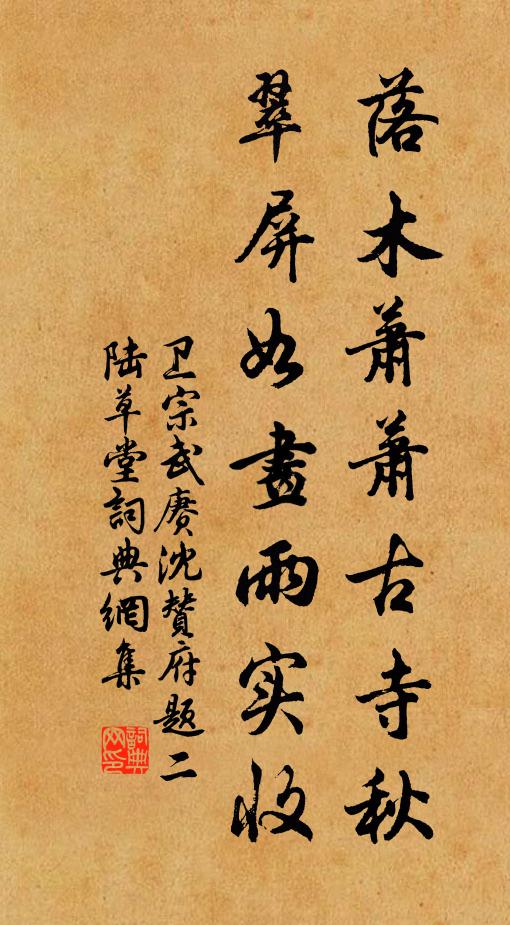 落木萧萧古寺秋
翠屏如畫雨实收
卫宗武赓沈赞府题二
陆草堂詞典網集
詞典
网印